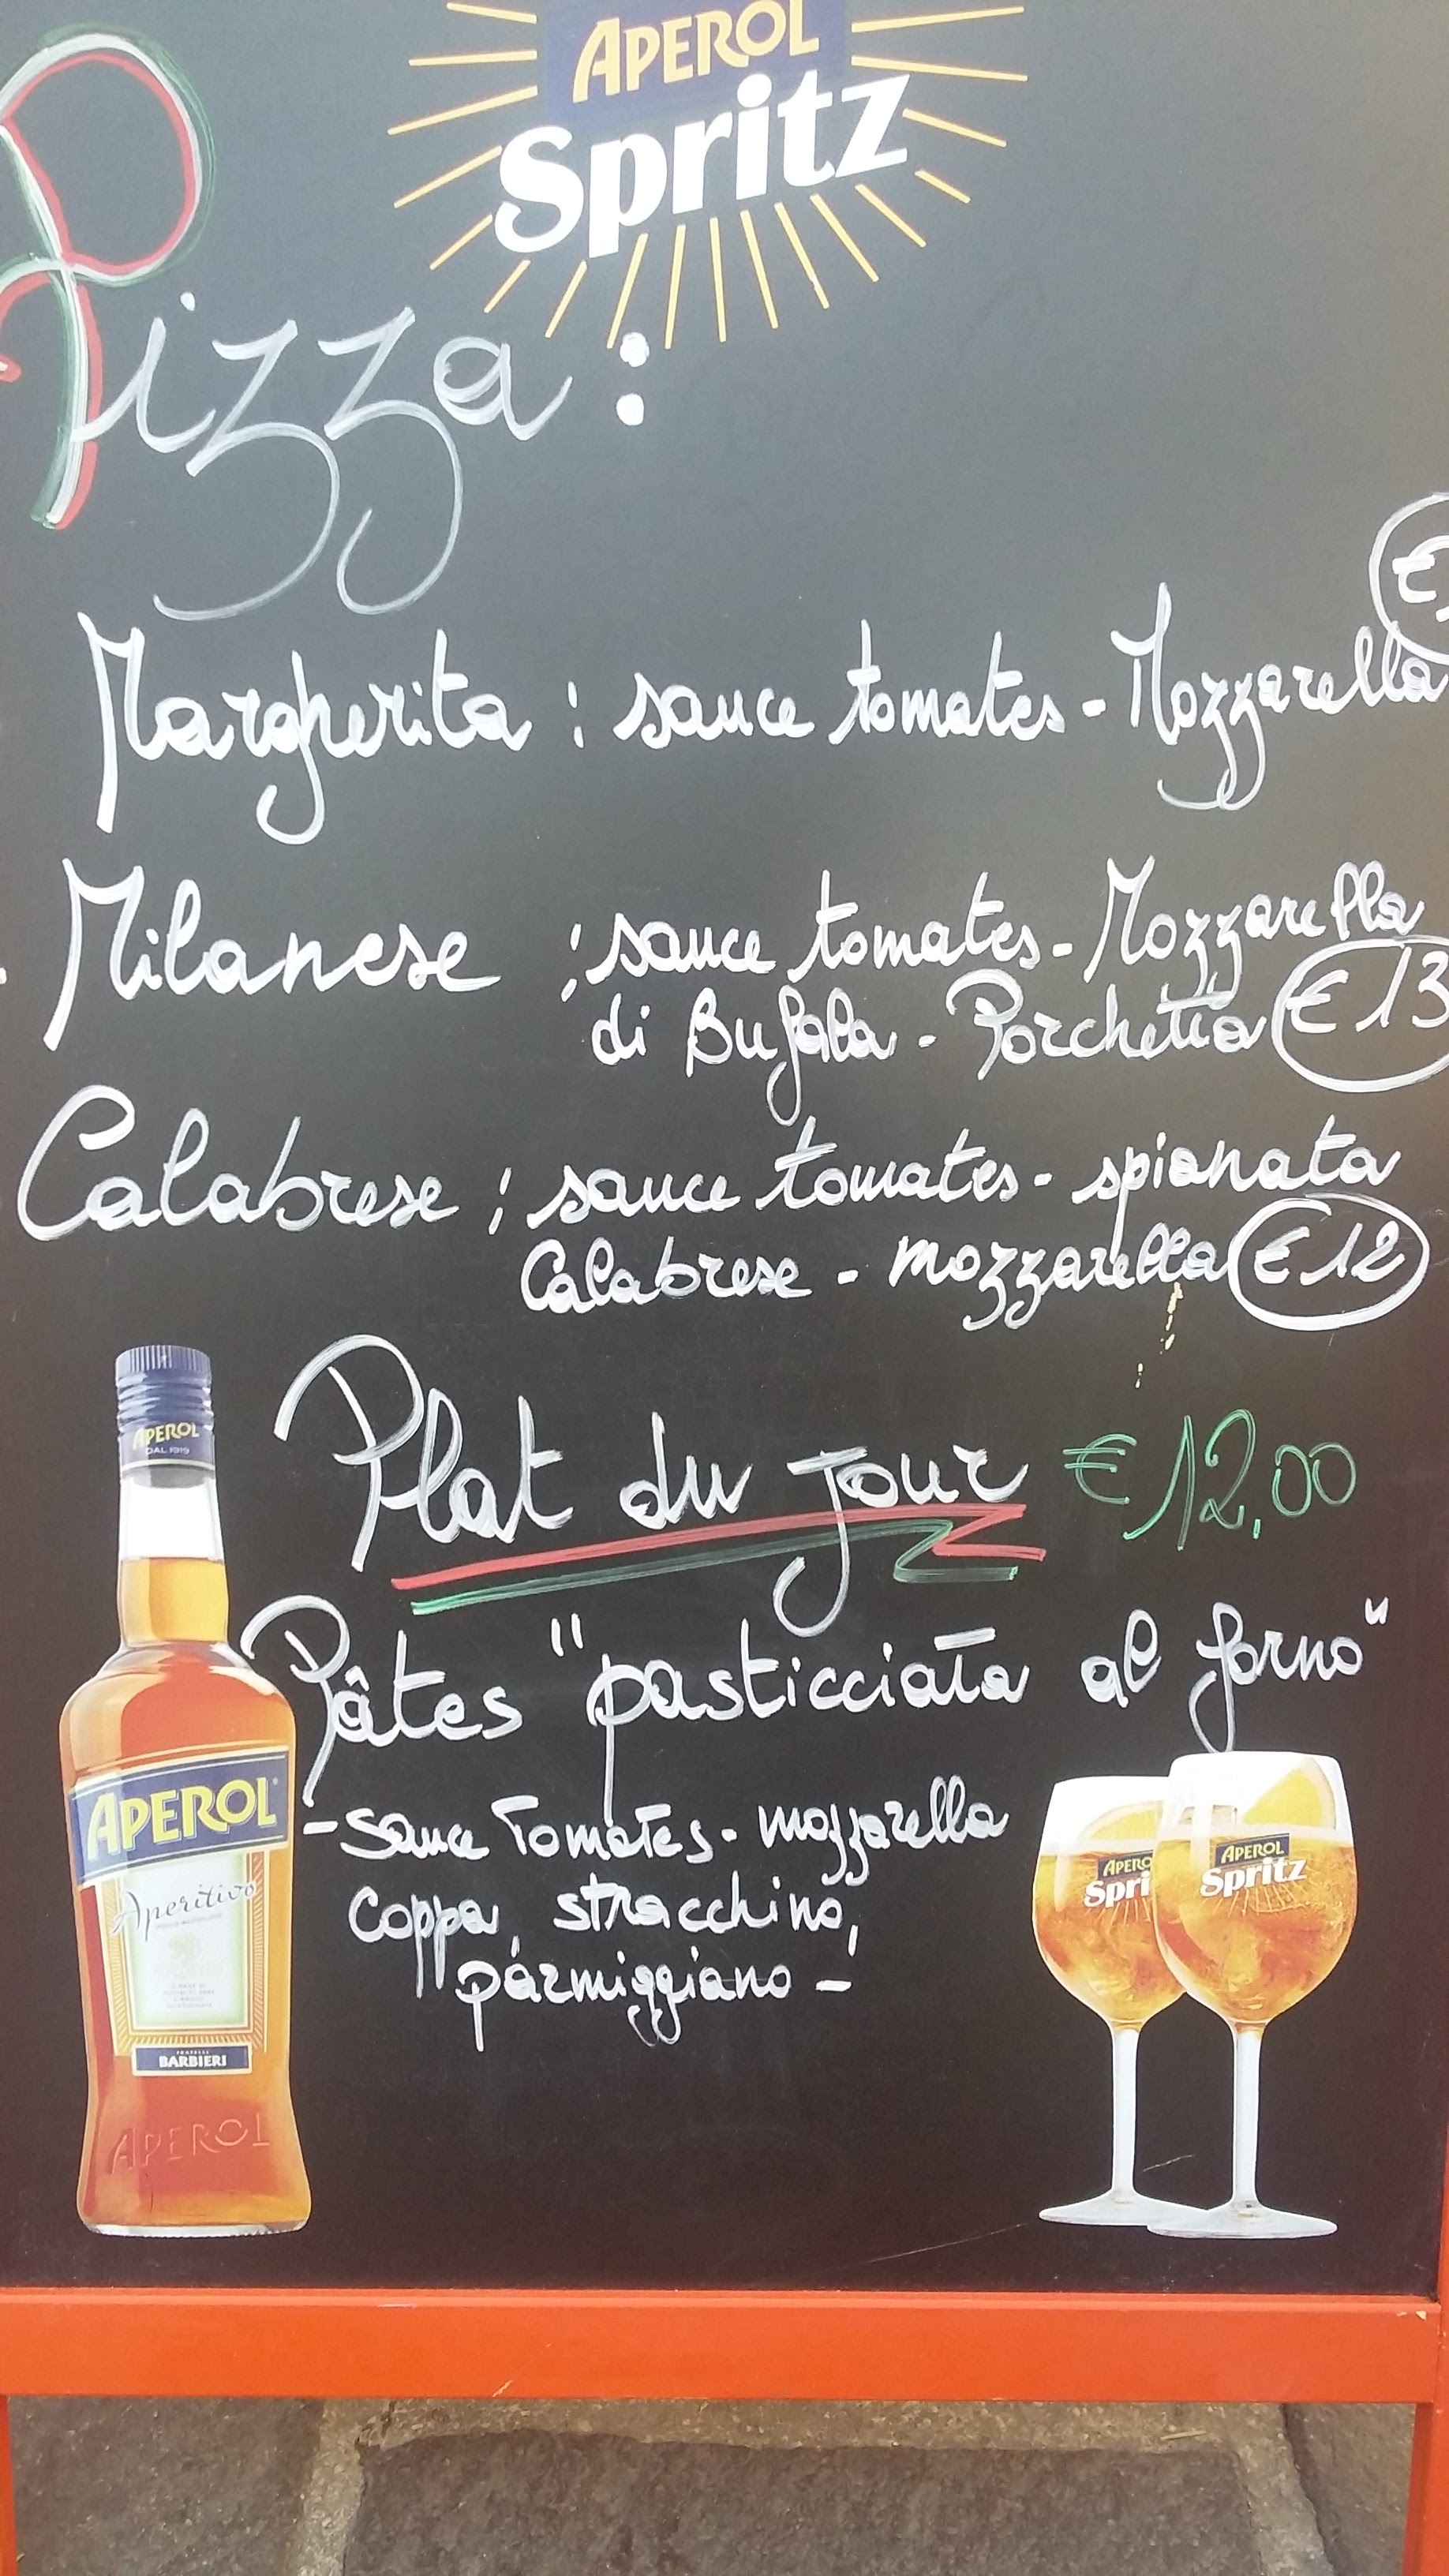 APEROL
Spritz
Pizza :
€
Margherita : sauce tomates - Mozzarella
Milanese : sauce tomates - Mozzarella
di Bufala - Porchetta € 13
Calabrese : sauce tomates - spianata
Calabrese - mozzarella € 12
Plat du jour € 12,00
Pâtes "pasticciata al forno"
- sauce tomates - mozzarella
coppa, stracchino,
parmiggiano -
APEROL
DAL 1919
APEROL
Aperitivo
BARBIERI
APEROL
APERO
Spri
APEROL
Spritz